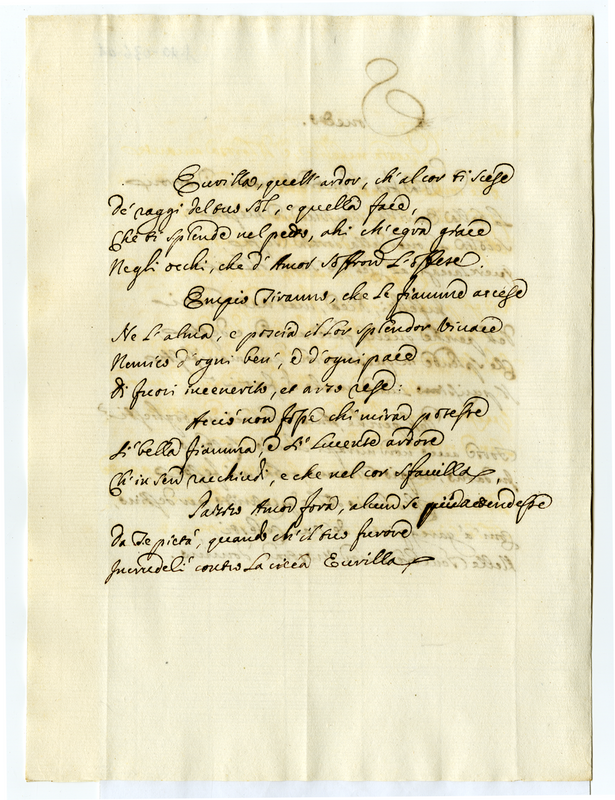 Sonetto.
Eurilla, quell' ardor, ch' al cor ti scese
de' raggi del tuo Sol, e quella face,
Che ti splende nel petto, ahi ch' egra giace
Negli occhi, che d' Amor soffron l'offese.
Empio Tiranno, che le fiamme accese
Ne l' alma, e poscia il lor splendor vivace
Nemico d' ogni ben', e d' ogni pace
di fuori incenerito, et arso rese:
Acciò non fosse chi mirar potesse
Sì bella fiamma, e sì lucente ardore
Ch' in sen racchiudi, e che nel cor sfavilla,
Pazzo Amor fora, alcun se più attendesse
da te pietà, quando ch' il tuo furore
Incrudelì contro la cieca Eurilla